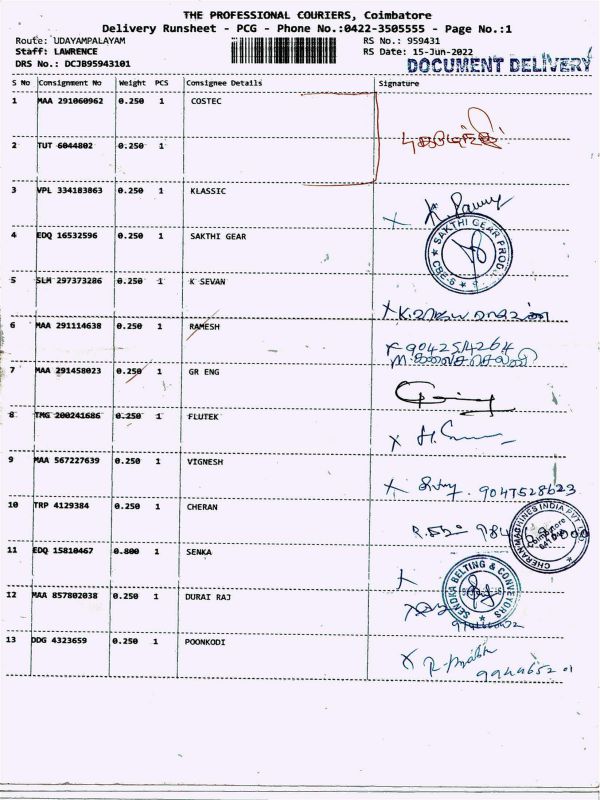 THE PROFESSIONAL COURIERS, Coimbatore
Delivery Runsheet - PCG - Phone No.:0422-3505555 - Page No.:1
Route: UDAYAMPALAYAM RS No.: 959431
Staff: LAWRENCE RS Date: 15-Jun-2022
DRS No.: DCJB95943101 DOCUMENT DELIVERY
S No Consignment No Weight PCS Consignee Details Signature
1 MAA 291060962 0.250 1 COSTEC
2 TUT 6044802 0.250 1
3 VPL 334183863 0.250 1 KLASSIC
4 EDQ 16532596 0.250 1 SAKTHI GEAR
SAKTHI GEAR PROD
CBE-6
5 SLM 297373286 0.250 1 K SEVAN
6 MAA 291114638 0.250 1 RAMESH
9042514264
7 MAA 291458023 0.250 1 GR ENG
8 TMG 200241686 0.250 1 FLUTEK
9 MAA 567227639 0.250 1 VIGNESH
9047528623
10 TRP 4129384 0.250 1 CHERAN
CHERAN MACHINES INDIA PVT LTD
Coimbatore
11 EDQ 15810467 0.800 1 SENKA
SENDKA BELTING & CONVEYORS
12 MAA 857802038 0.250 1 DURAI RAJ
13 DDG 4323659 0.250 1 POONKODI